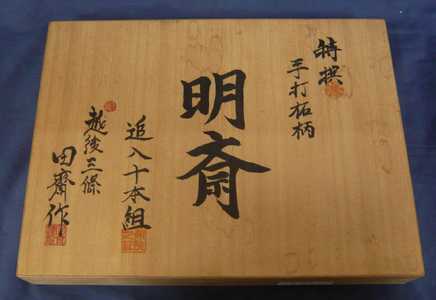 特撰
手打柘柄
明斎
追入十本組
越後三條
田齋作